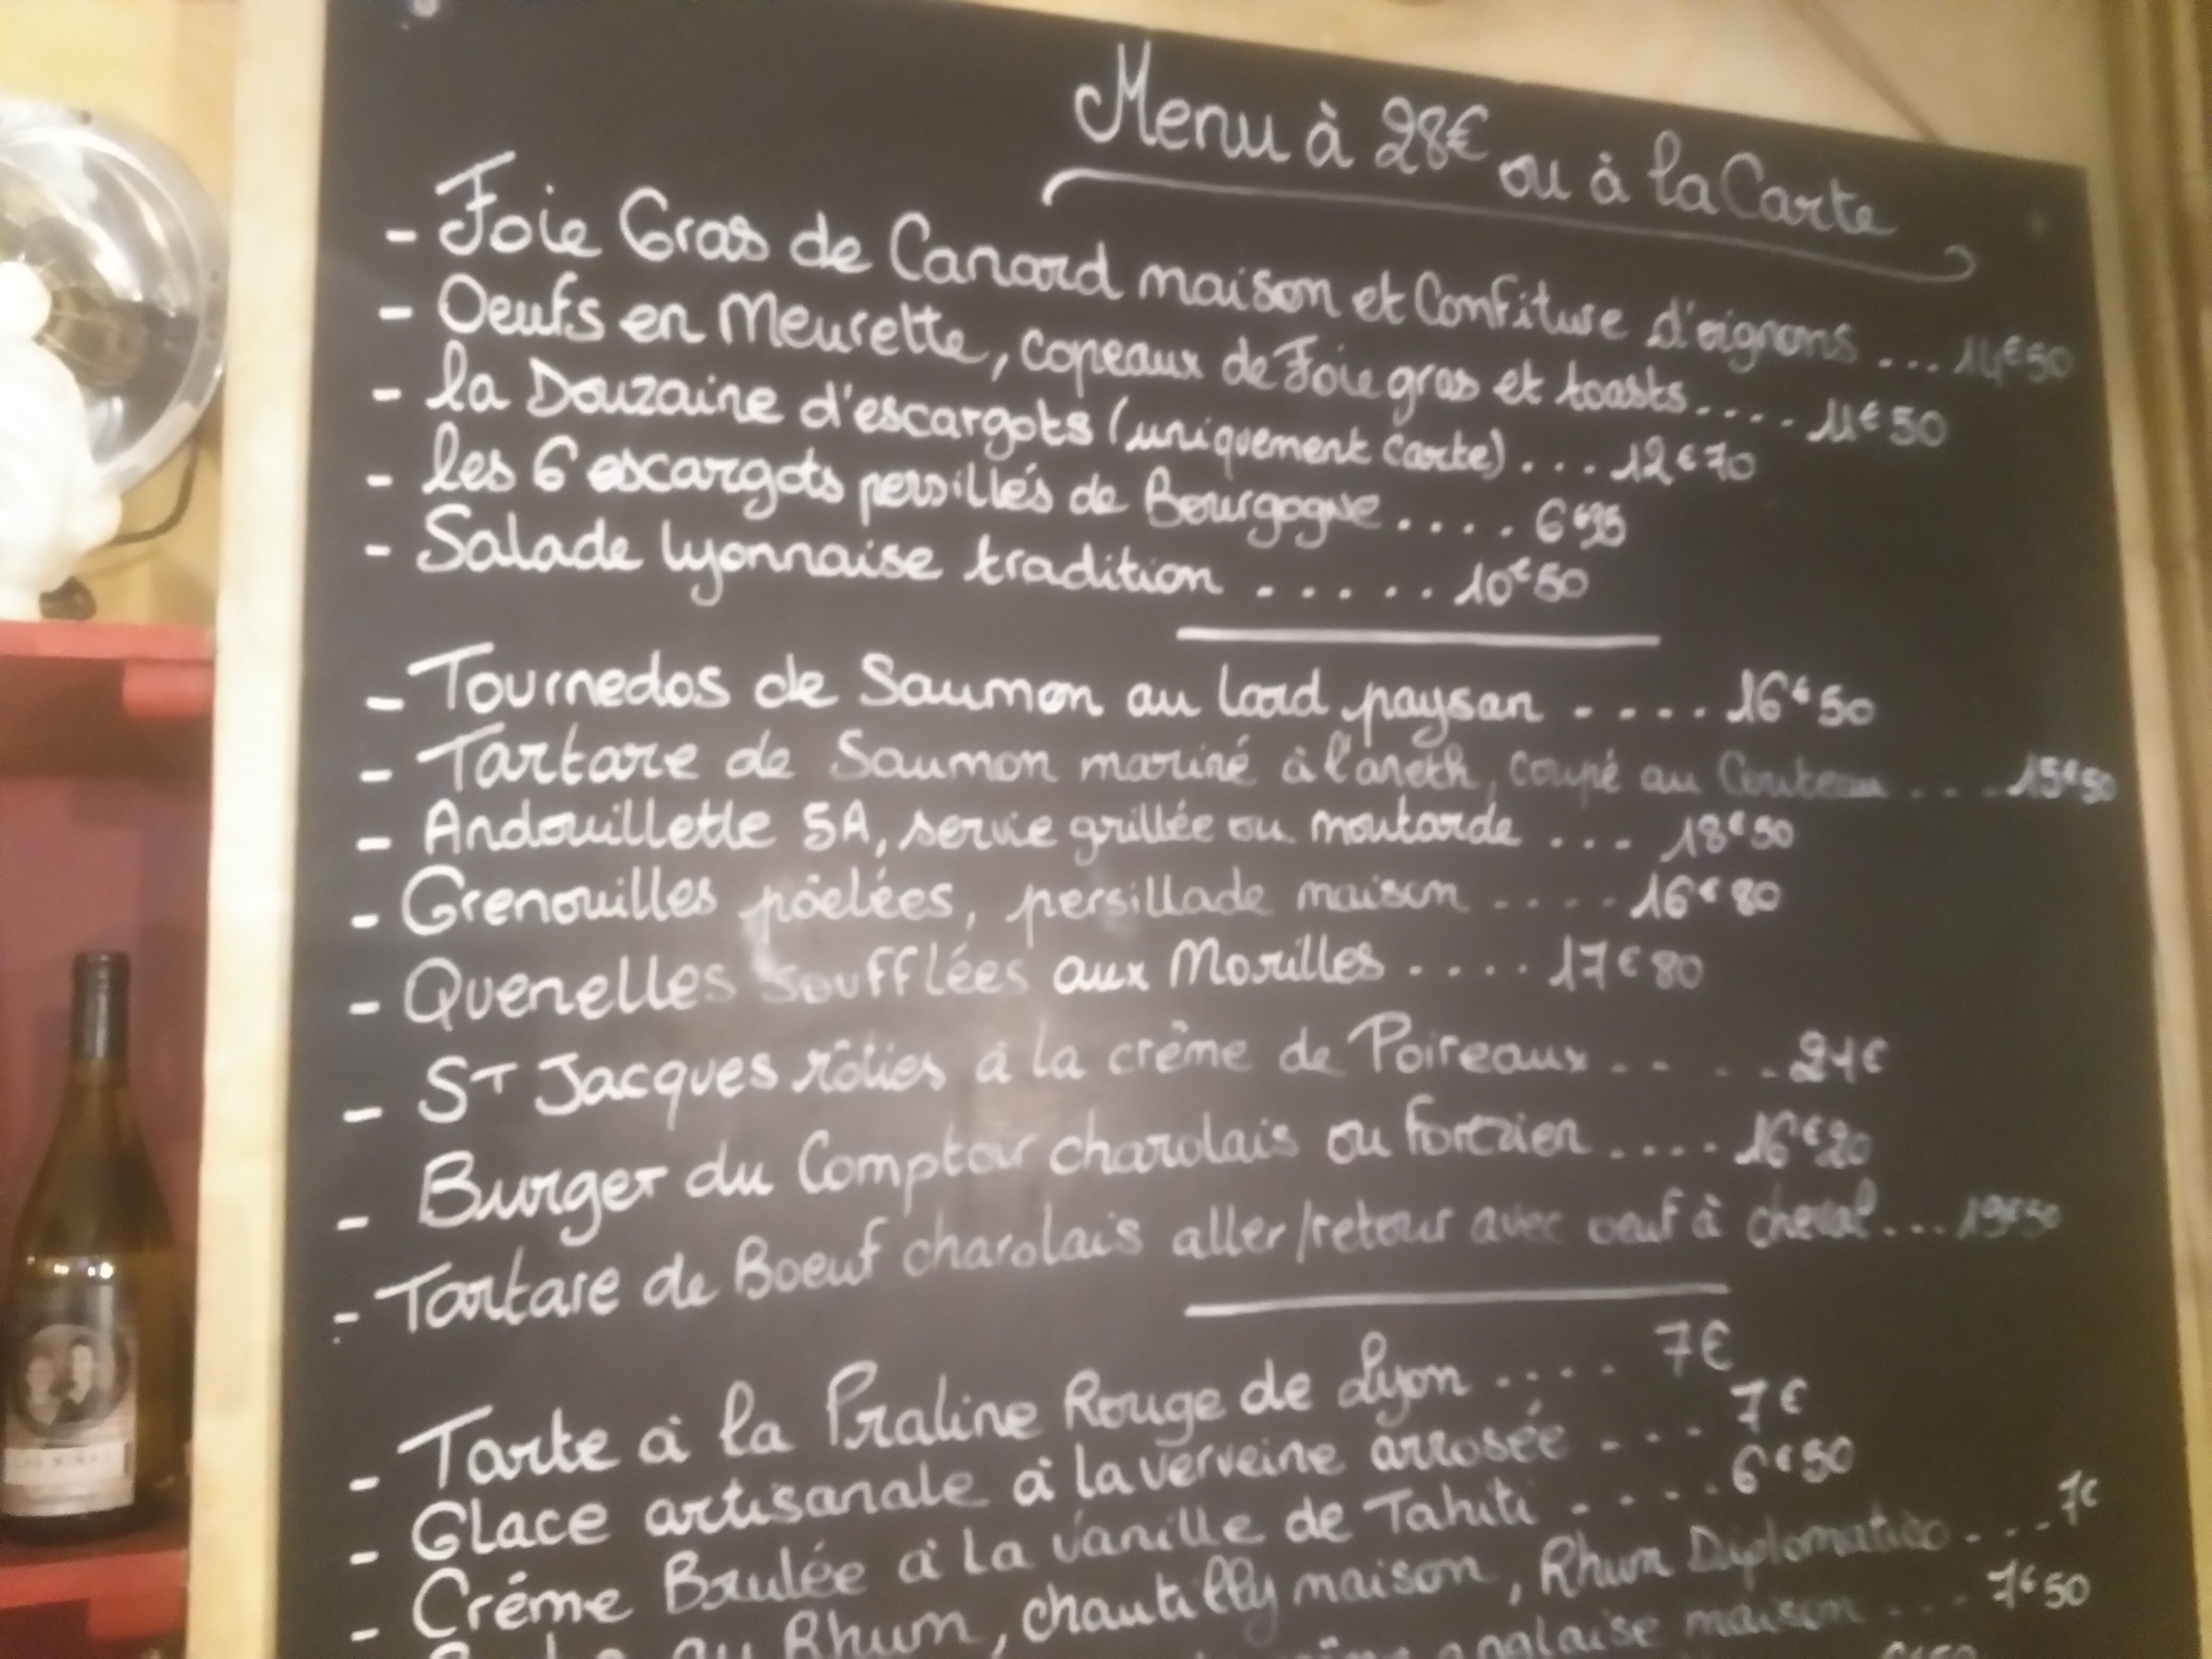 Menu à 28€ ou à la Carte
- Foie Gras de Canard maison et Confiture d'oignons ... 14€50
- Oeufs en Meurette, copeaux de Foie gras et toasts.... 11€50
- la Douzaine d'escargots (uniquement carte) ... 12€70
- les 6 escargots persillés de Bourgogne .... 6€95
- Salade lyonnaise tradition ..... 10€50
- Tournedos de Saumon au lard paysan .... 16€50
- Tartare de Saumon mariné à l'aneth, coupé au Couteau ... 15€50
- Andouillette 5A, servie grillée ou moutarde ... 18€50
- Grenouilles pöelées, persillade maison .... 16€80
- Quenelles soufflées aux Morilles .... 17€80
- ST Jacques rôties à la crême de Poireaux .... 21€
- Burger du Comptoir charolais ou Forézien .... 16€20
- Tartare de Boeuf charolais aller/retour avec oeuf à cheval... 19€50
- Tarte à la Praline Rouge de Lyon .... 7€
- Glace artisanale à la verveine arrosée ... 7€
- Créme Brulée à la vanille de Tahiti .... 6€50
au Rhum, chantilly maison, Rhum Diplomatico ... 7€
anglaise maison ... 7€50